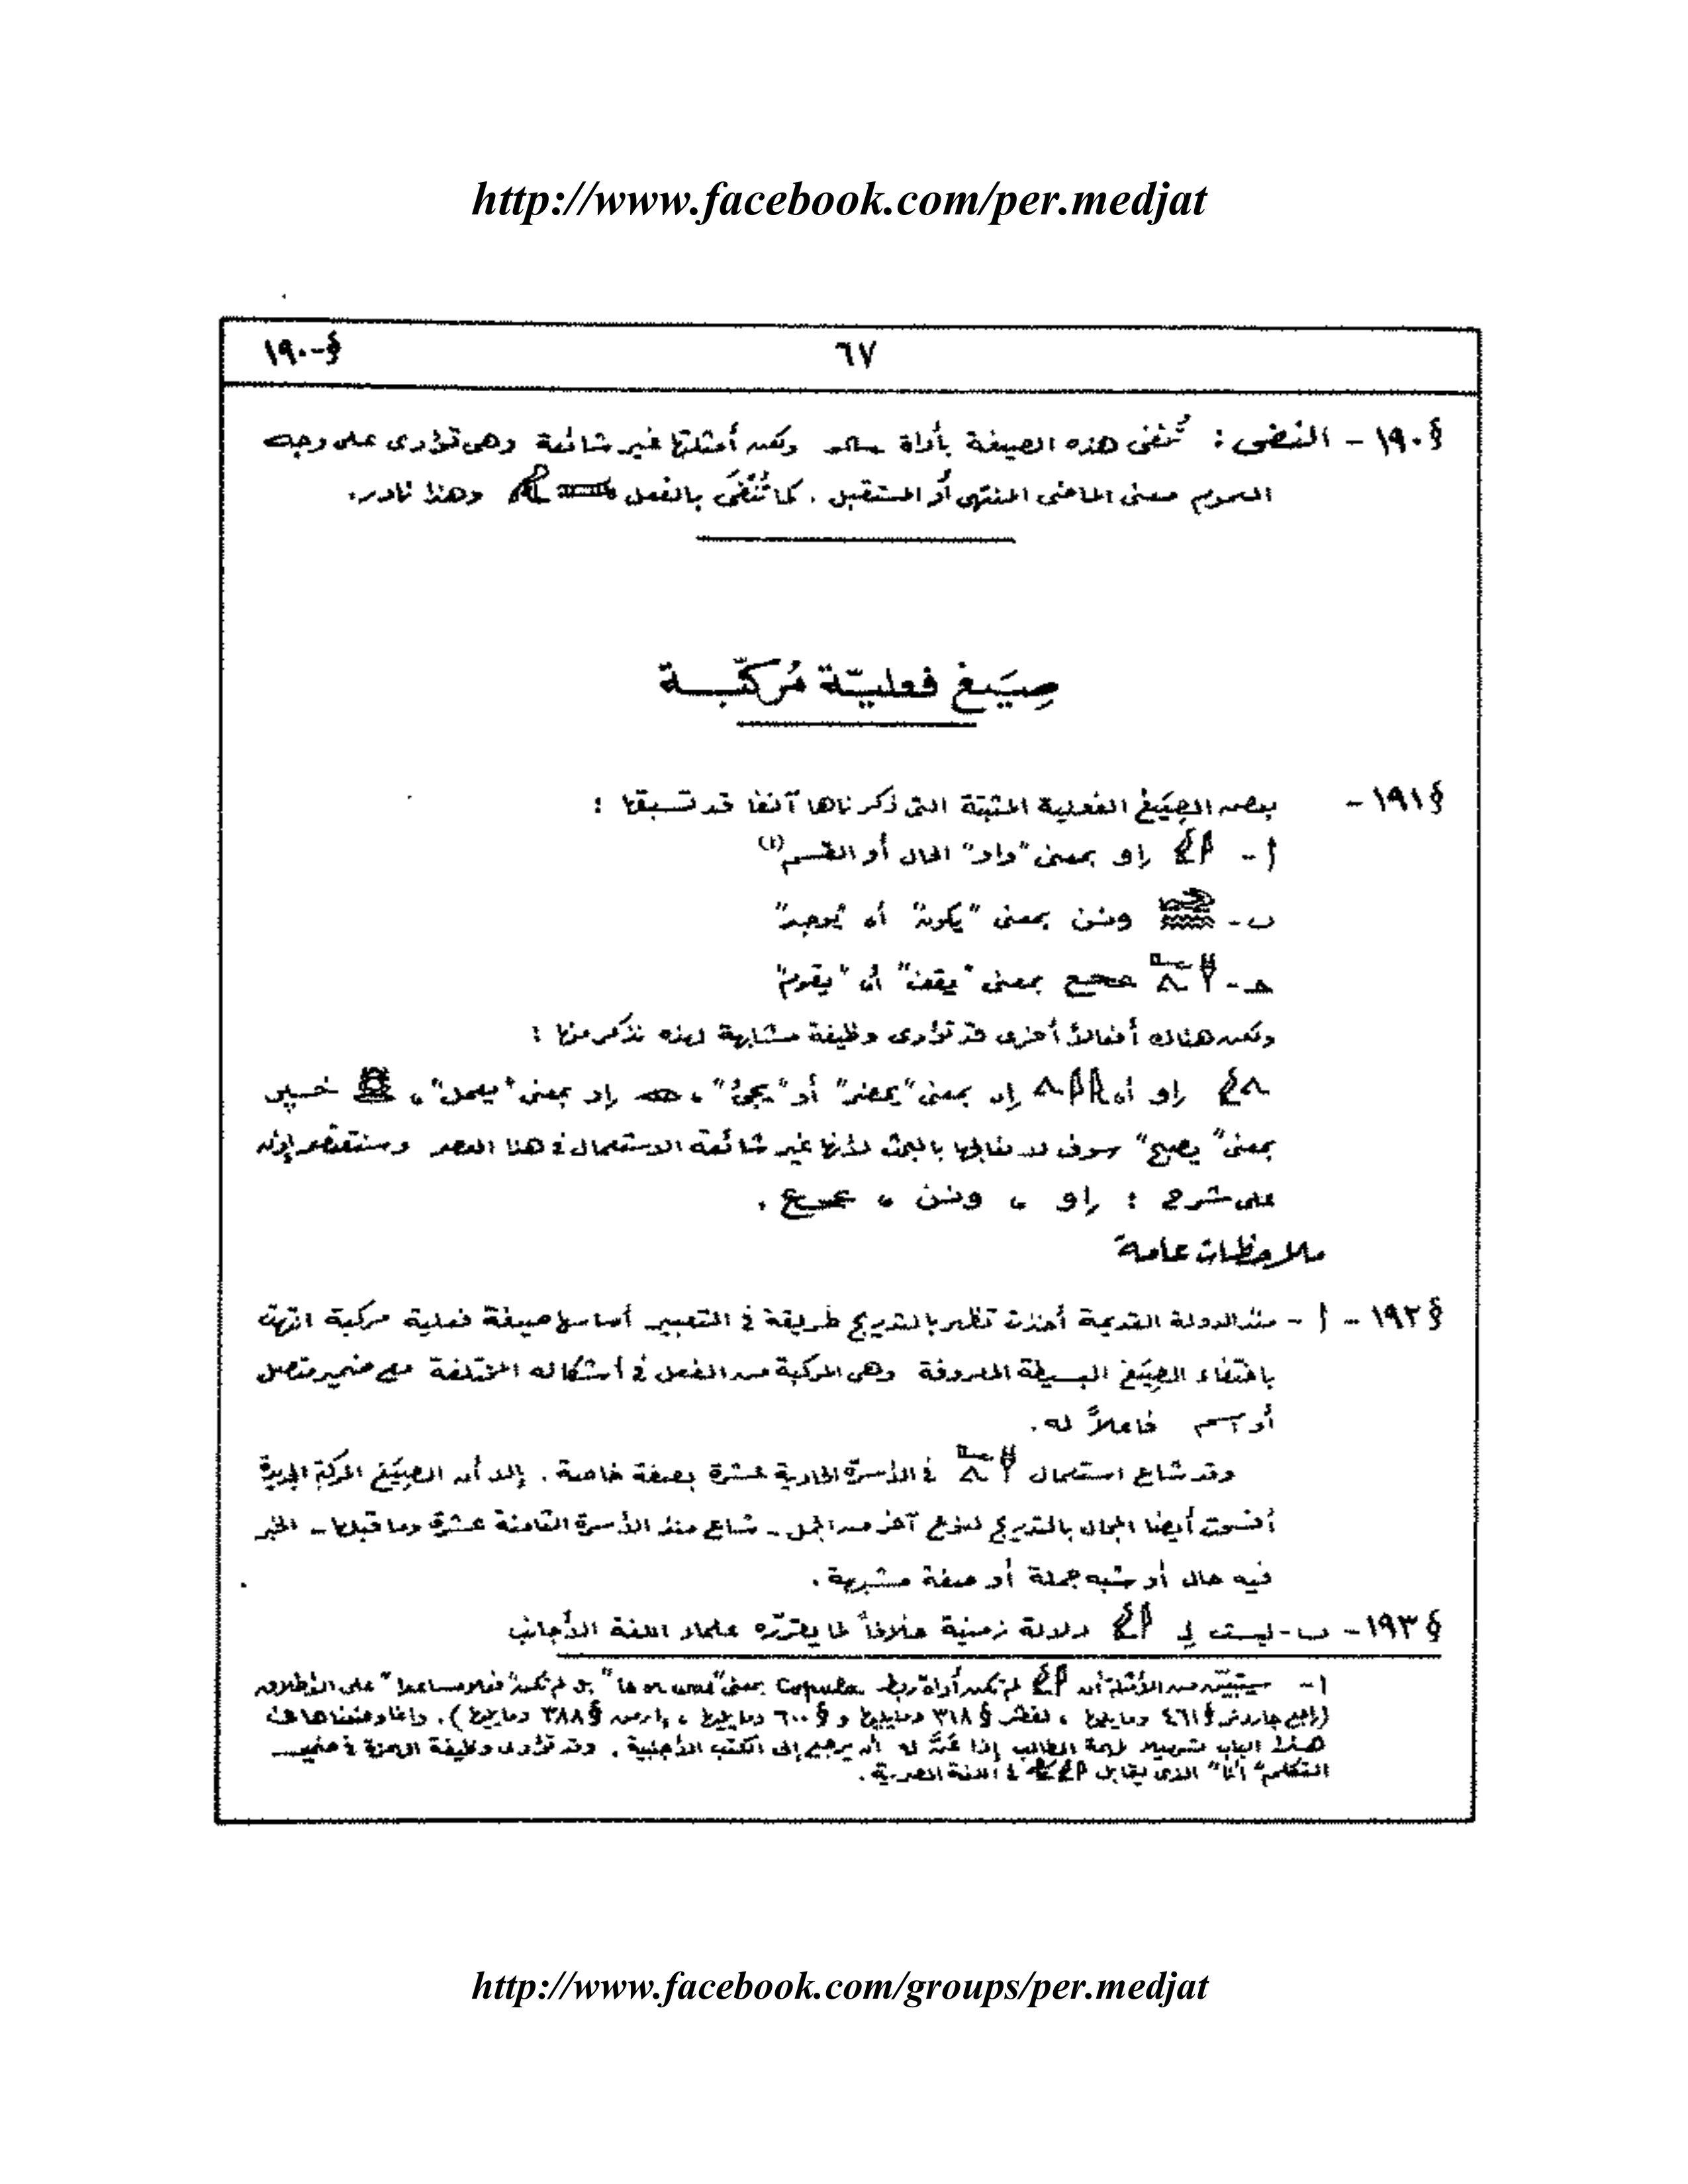 http://www.facebook.com/per.medjat
§-١٩٠
٦٧
§١٩٠ - النفى : تُنفى هذه الصيغة بأداة ولكن أمثلتها غير شائعة وهى تؤدى على وجه
العموم معنى الماضى المنتهى أو المستقبل . كما تُنْفَى بالفعل وهذا نادر.
صِيَغ فعليّة مُركّبة
§١٩١ - بعض الصِيَغ الفعلية المثبتة التى ذكرناها آنفا قد تسبقها :
أ - 𓇋𓅱 إو بمعنى "واو" الحال أو القسم (١)
ب - ونن بمعنى "يكون" أو "يوجد"
ح - عحع بمعنى "يقف" أو "يقوم"
ولكن هناك أفعالاً أخرى قد تؤدى وظيفة مشابهة لهذه نذكر منها :
إو أو إى بمعنى "يحضر" أو "يجئ" ، 𓁹 إر بمعنى "يعمل" ، خـپـر
بمعنى "يصبح" سوف لا نعالجها بالبحث لأنها غير شائعة الاستعمال فى هذا العصر وسنقتصر إذن
على شرح : إو ، ونن ، عحع .
ملاحظات عامة
§١٩٢ - أ - منذ الدولة القديمة أخذت تظهر بالتدريج طريقة فى التعبير أساسها صيغة فعلية مركبة انتهت
باختفاء الصِيَغ البسيطة المعروفة وهى المركبة من الفعل فى أشكاله المختلفة مع ضمير متصل
أو اسم فاعلاً له .
وقد شاع استعمال فى الأسرة الحادية عشرة بصفة خاصة . إلا أن الصِيَغ المركبة الجديدة
أفسحت أيضا المجال بالتدريج لنوع آخر من الجمل - شاع منذ الأسرة الثامنة عشرة وما قبلها - الخبر
فيه حال أو شبه جملة أو صفة مشبهة .
§١٩٣ - ب - ليست لـ 𓇋𓅱 دلالة زمنية خلافاً لما يقرّره علماء اللغة الأجانب
١ - سيتبيّن من الأمثلة أن 𓇋𓅱 لم تكن أداة ربط Copula بمعنى بل لم تكن "فعلا مساعدا" على الإطلاق
(راجع جاردنر §٤٦١ وما يليها ، لفڤر §٣١٨ وما يليها و §٦٠٠ وما يليها ، إرمن §٣٨٨ وما يليها ) . وإنما وضعناها فى
هذا الباب تسهيلا لمهمة الطالب إذا عَنَّ له أن يرجع إلى الكتب الأجنبية . وقد تؤدى وظيفة الهمزة فى ضمير
المتكلم "أنا" الذى يقابل فى اللغة المصرية .
http://www.facebook.com/groups/per.medjat